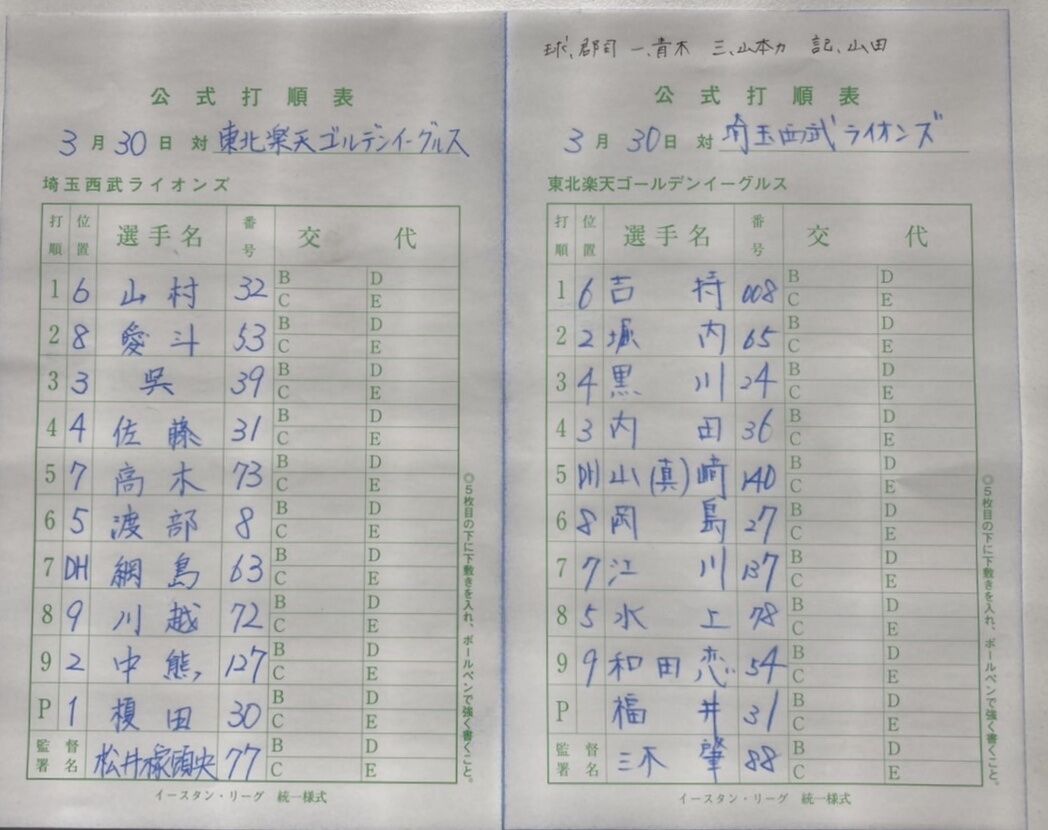 公式打順表
3月30日 対 東北楽天ゴルデンイーグルス
埼玉西武ライオンズ
打順 位置 選手名 番号 交代
1 6 山村 32 B D C E
2 8 愛斗 53 B D C E
3 3 呉 39 B D C E
4 4 佐藤 31 B D C E
5 7 高木 73 B D C E
6 5 渡部 8 B D C E
7 DH 綱島 63 B D C E
8 9 川越 72 B D C E
9 2 中熊 127 B D C E
P 1 榎田 30 B D C E
監督署名 松井稼頭央 77 B D C E
◎5枚目の下に下敷きを入れ、ボールペンで強く書くこと。
イースタン・リーグ 統一様式
球、郡司 一、青木 三、山本力 記、山田
公式打順表
3月30日 対 埼玉西武ライオンズ
東北楽天ゴールデンイーグルス
打順 位置 選手名 番号 交代
1 6 吉持 008 B D C E
2 2 堀内 65 B D C E
3 4 黒川 24 B D C E
4 3 内田 36 B D C E
5 DH 山(真)﨑 140 B D C E
6 8 岡島 27 B D C E
7 7 江川 137 B D C E
8 5 水上 78 B D C E
9 9 和田恋 54 B D C E
P 福井 31 B D C E
監督署名 三木肇 88 B D C E
◎5枚目の下に下敷きを入れ、ボールペンで強く書くこと。
イースタン・リーグ 統一様式